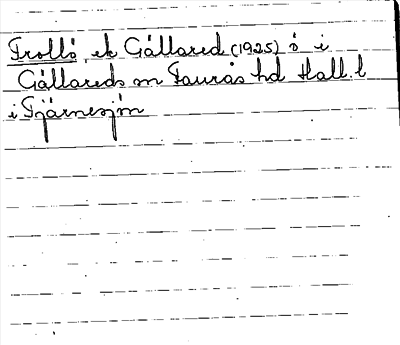 Trollö, ek Gällared (1925) ö i
Gällareds sn Faurås hd Hall. l
i Tjärnesjön